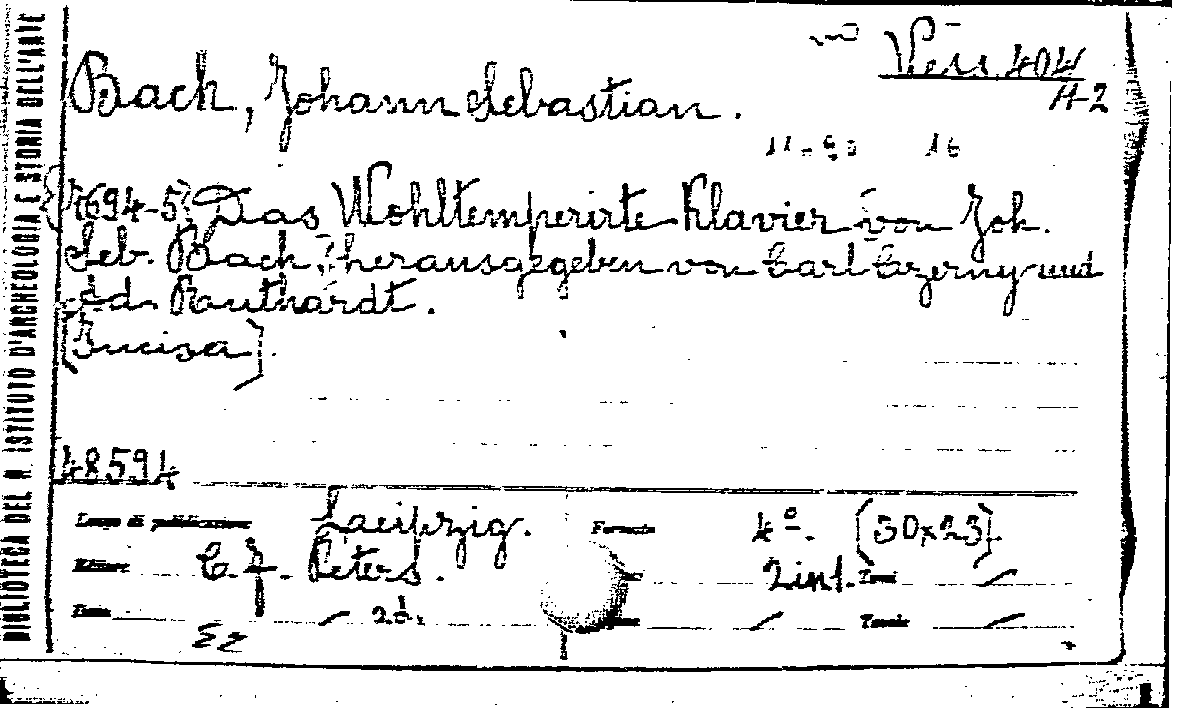 BIBLIOTECA DEL R. ISTITUTO D'ARCHEOLOGIA E STORIA DELL'ARTE
Vess. 404
A-2
Bach, Johann Sebastian.
[7694-5] Das Wohltemperirte Klavier von Joh.
Seb. Bach herausgegeben von Carl Czerny und
Ruthardt.
[Incisa].
48594
Luogo di pubblicazione Laeipzig. Formato 4º. (30x23).
Editore C. F. Peters. 2 int. Tomi /
Data / s. d. / Tavole /